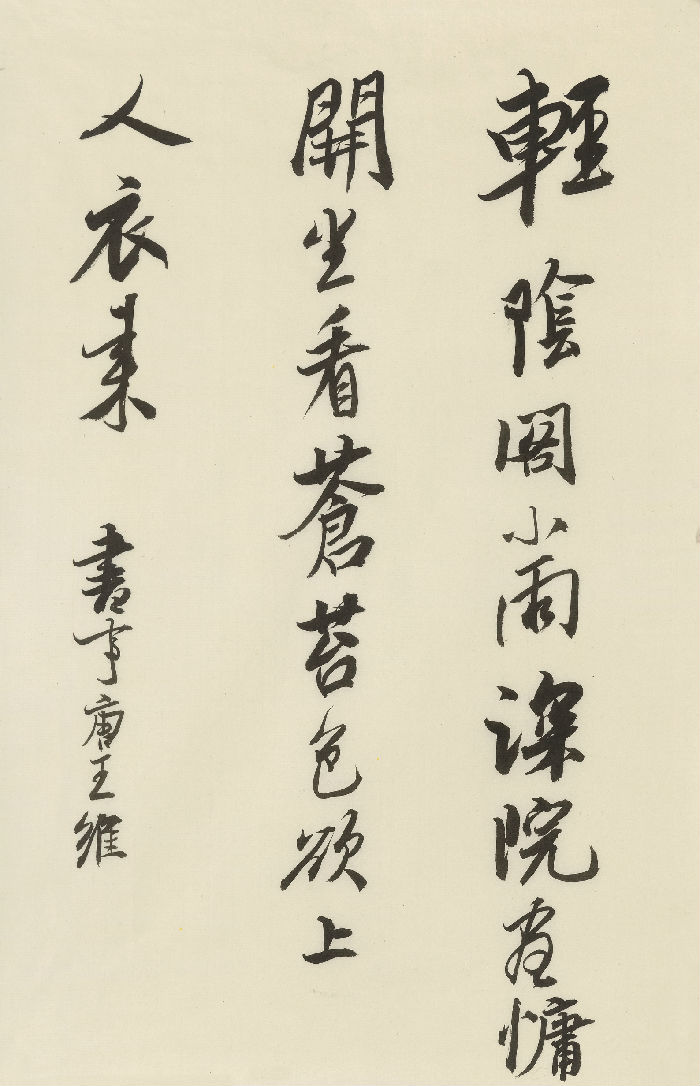 輕陰閣小雨深院晝慵
開坐看蒼苔色欲上
人衣來 書事唐王維